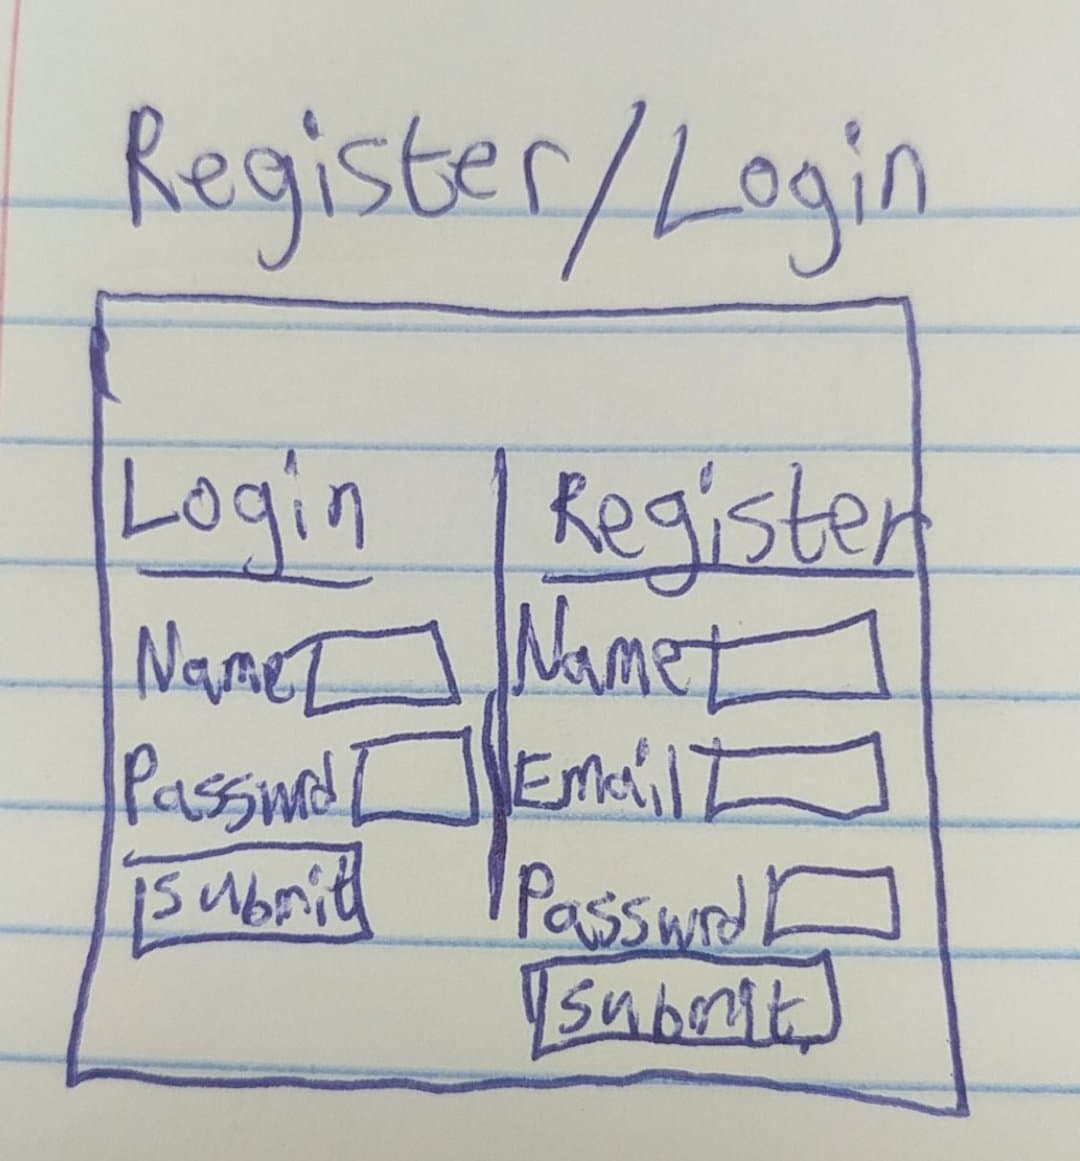 Register/Login
Login
Name
Passwrd
Submit
Register
Name
Email
Passwrd
Submit